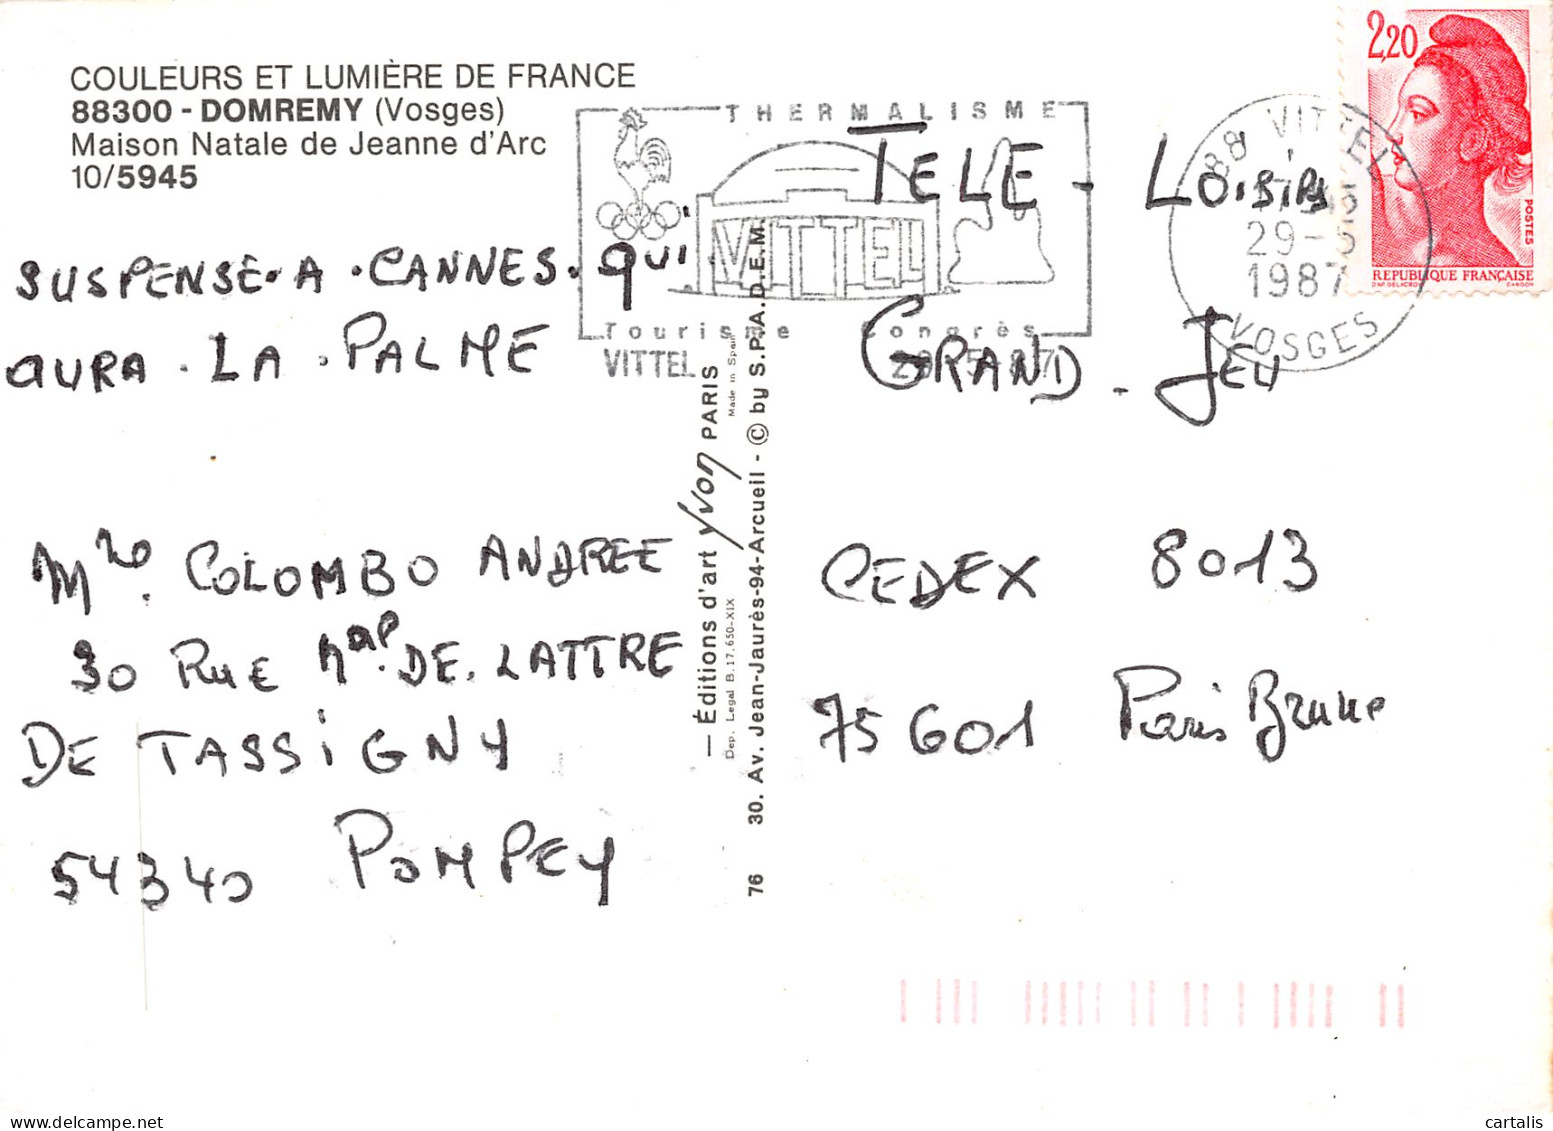 COULEURS ET LUMIÈRE DE FRANCE
88300 - DOMREMY (Vosges)
Maison Natale de Jeanne d'Arc
10/5945
SUSPENSE.A.CANNES.QUI
AURA.LA.PALME
Mme. COLOMBO ANDREE
30 RUE MAL. DE. LATTRE
DE TASSIGNY
54340 POMPEY
THERMALISME
VITTEL
Tourisme Congrès
VITTEL
— Éditions d'art yvon PARIS
Made in Spain
Dep. Legal B. 17.650-XIX
76 30. Av. Jean-Jaurès-94-Arcueil - © by S.P.A.D.E.M.
2,20
POSTES
REPUBLIQUE FRANÇAISE
D'AP. DELACROIX GANDON
88 VITTEL
29-5
1987
VOSGES
TELE - LOISIRS
GRAND - JEU
CEDEX 8013
75601 Paris Brune
cartalis